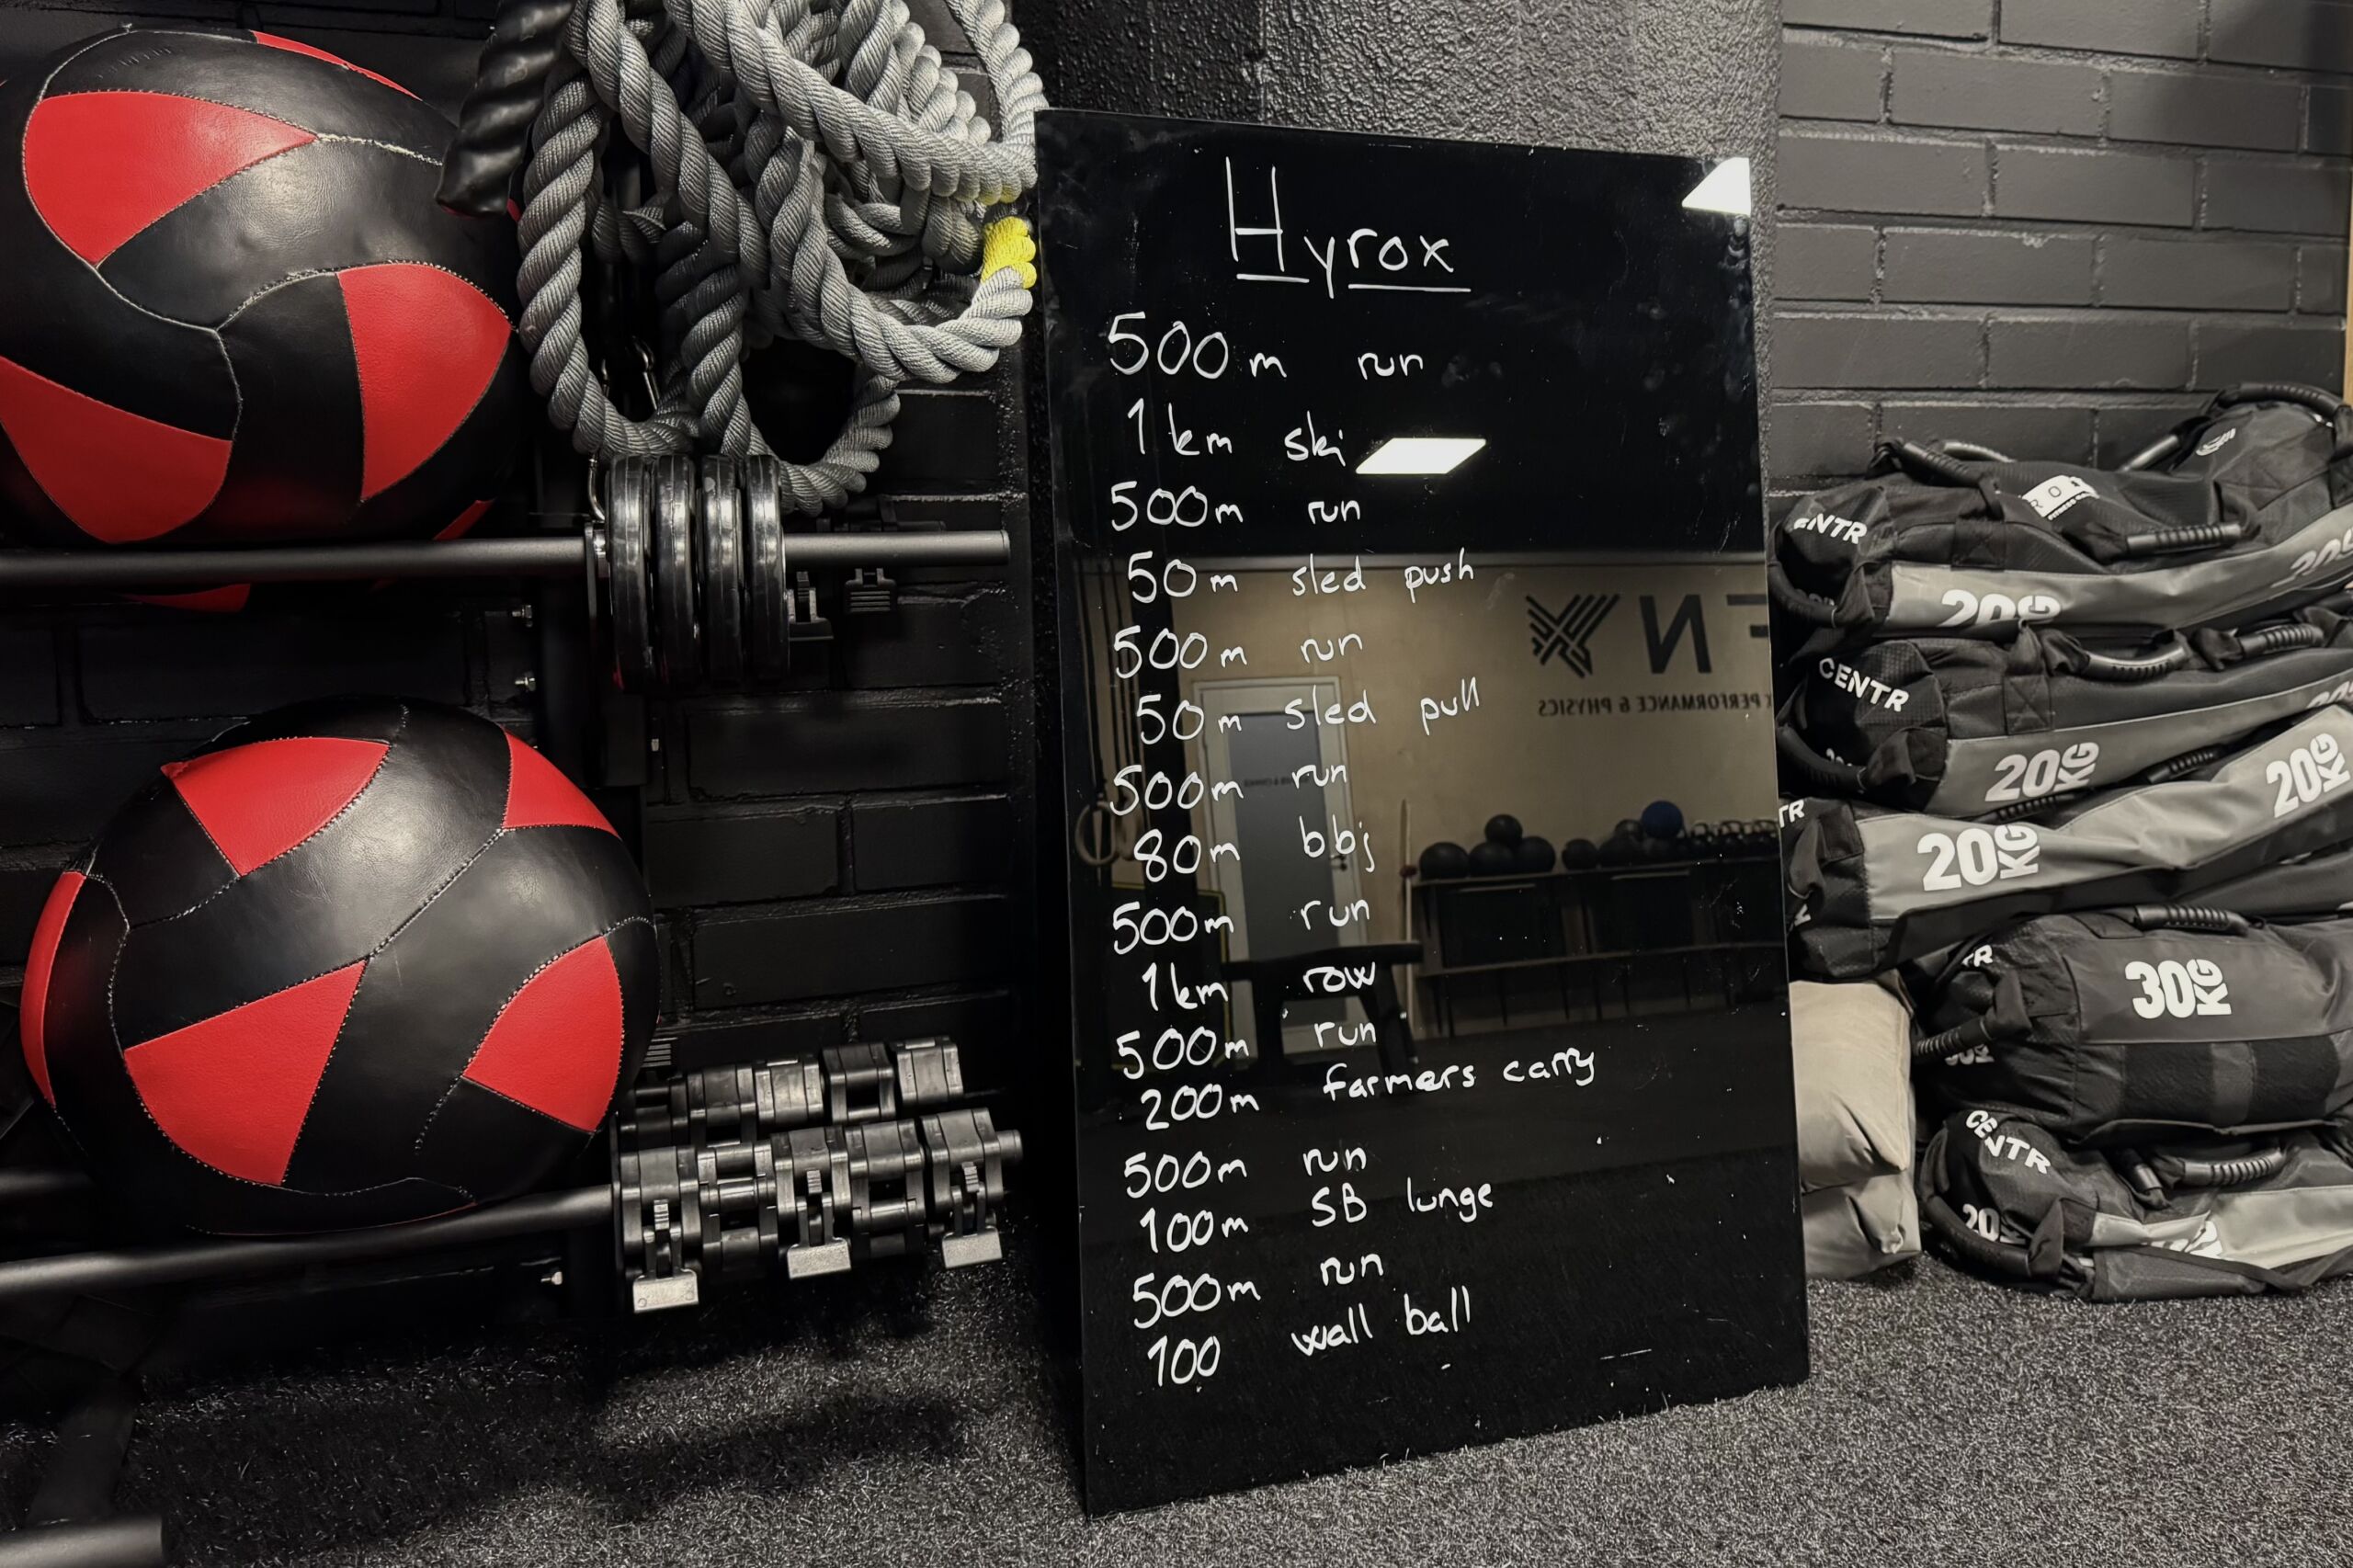 Hyrox
500m run
1km ski
500m run
50m sled push
500m run
50m sled pull
500m run
80m bbj
500m run
1km row
500m run
200m farmers carry
500m run
100m SB lunge
500m run
100 wall ball
FN
PERFORMANCE & PHYSICS
CENTR
20KG
CENTR
20KG
20KG
20KG
30KG
CENTR
20